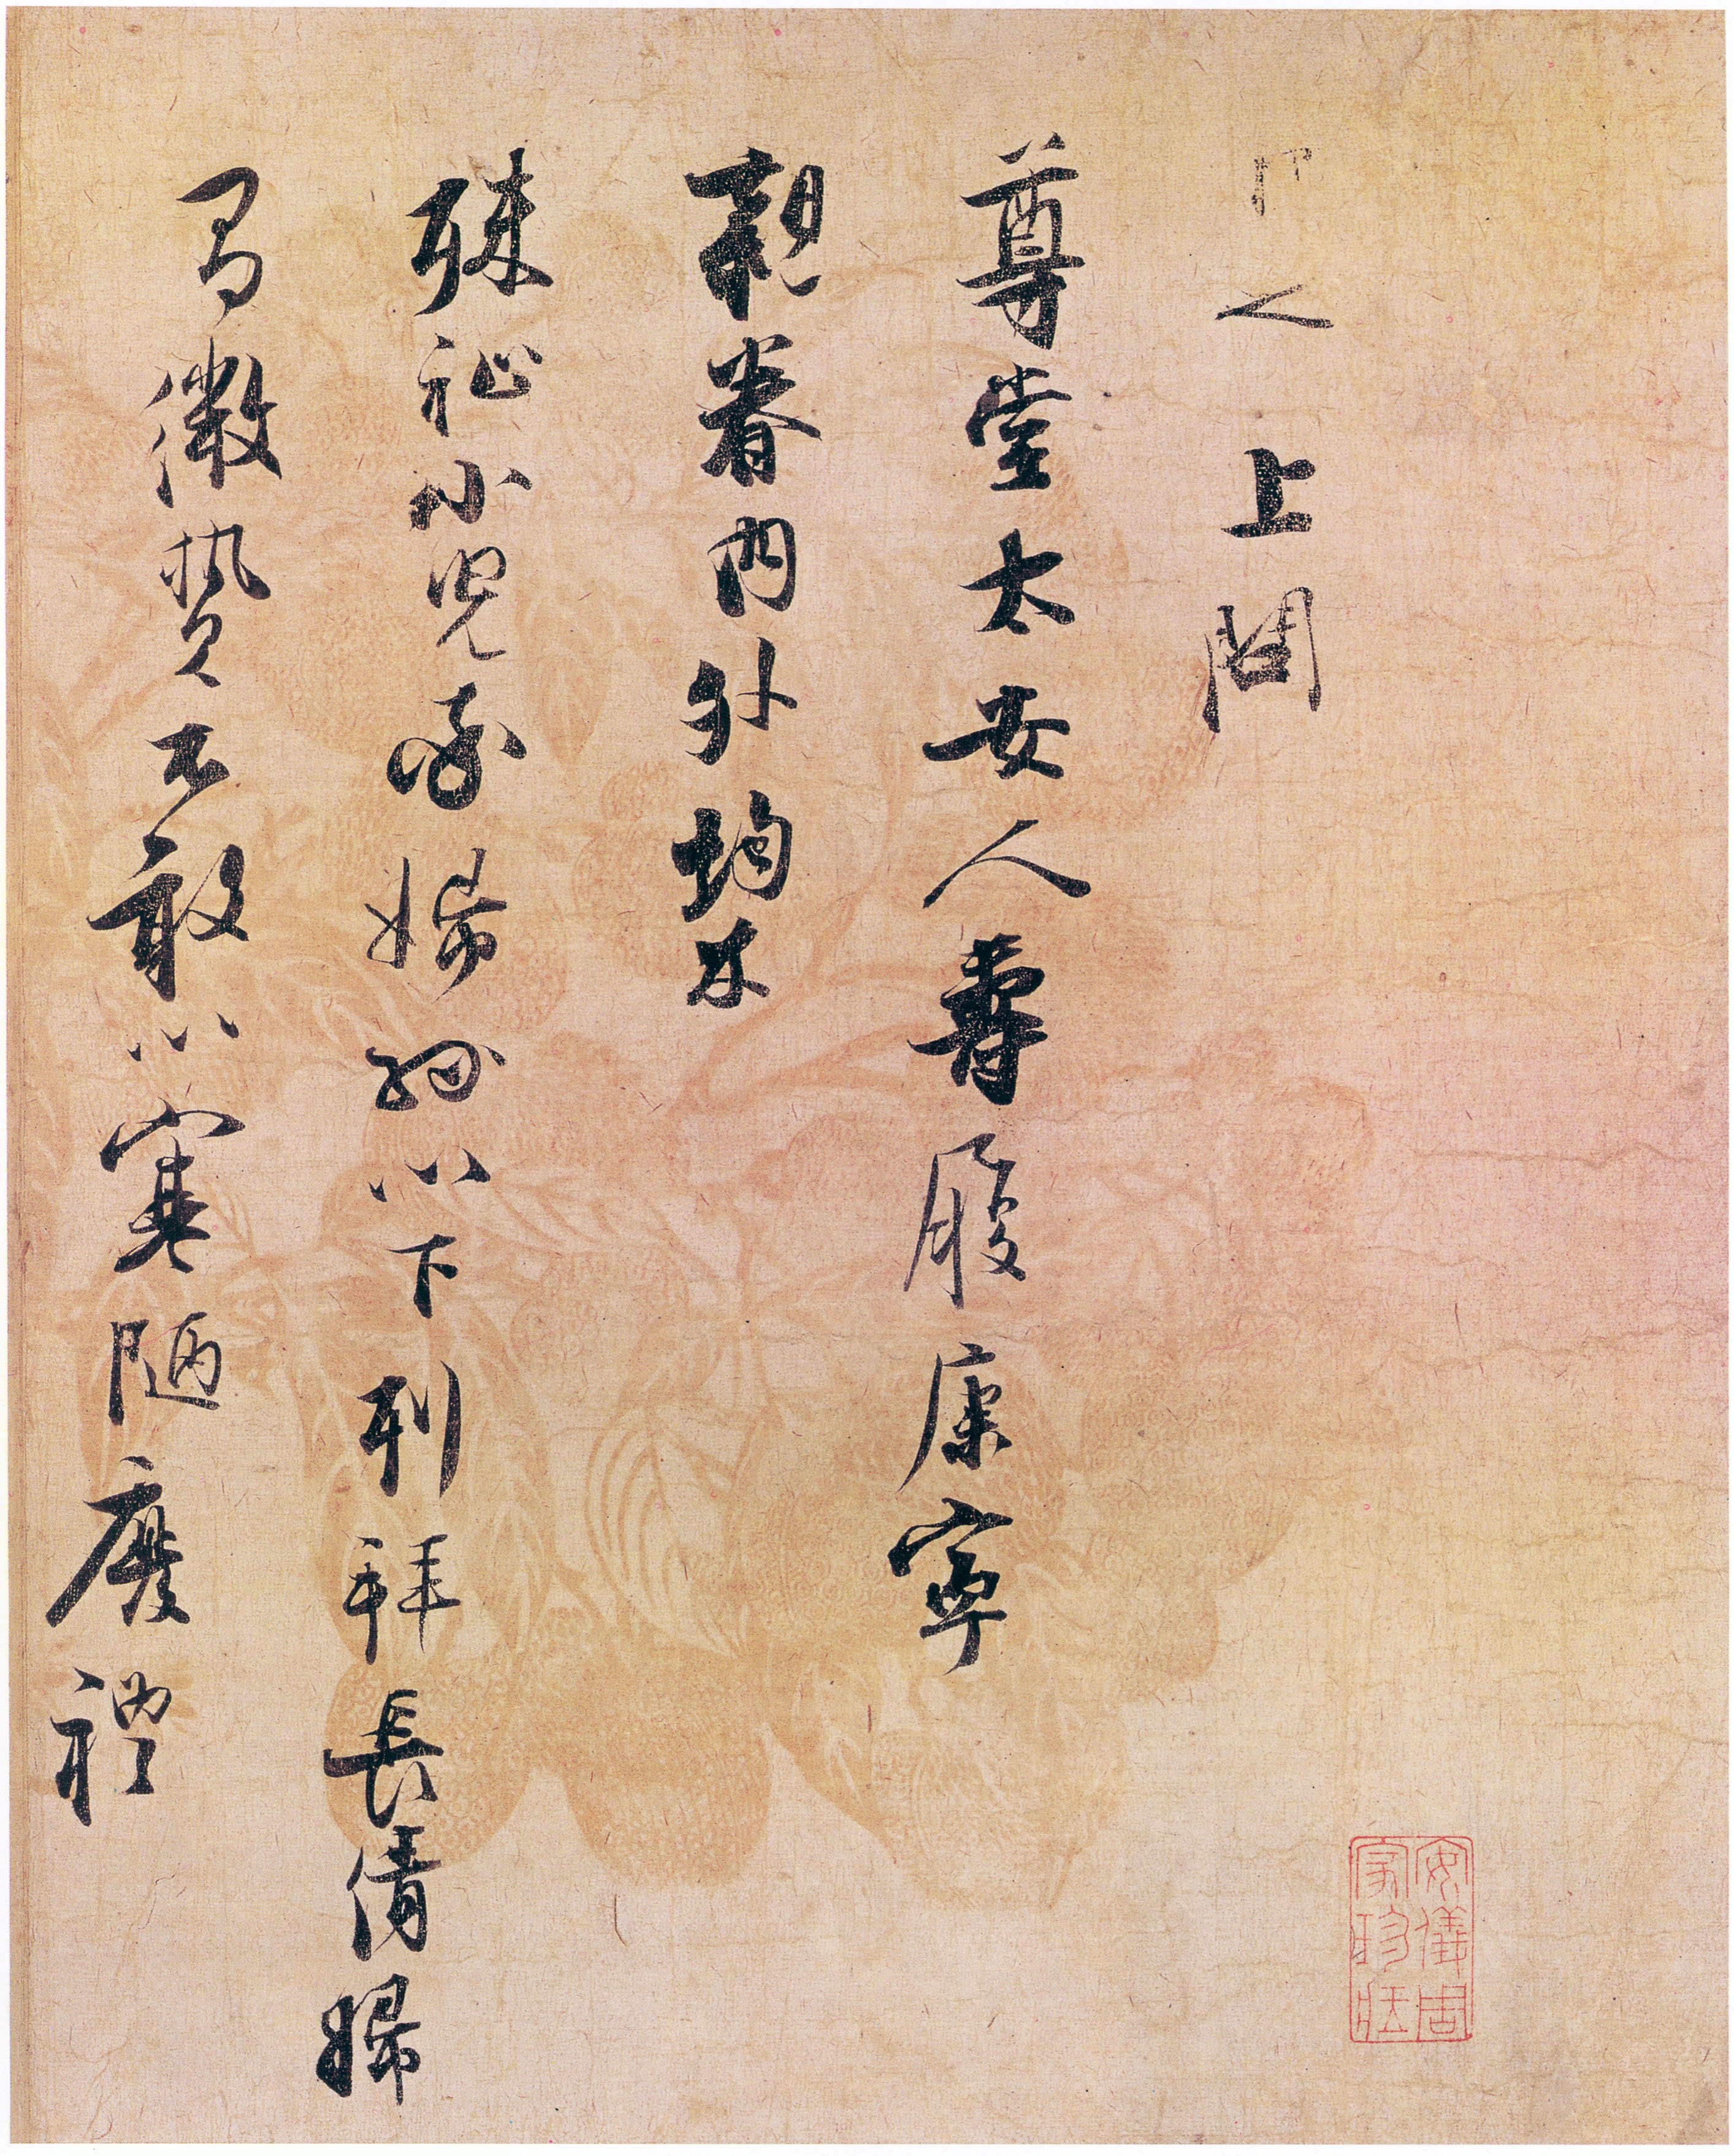 押之 上問
尊堂太安人壽履康寧
親眷内外均休
殊祉小兒女婦姪以下列拜長倩歸
有微贄不敢以寒陋廢禮
安儀周
家珍藏